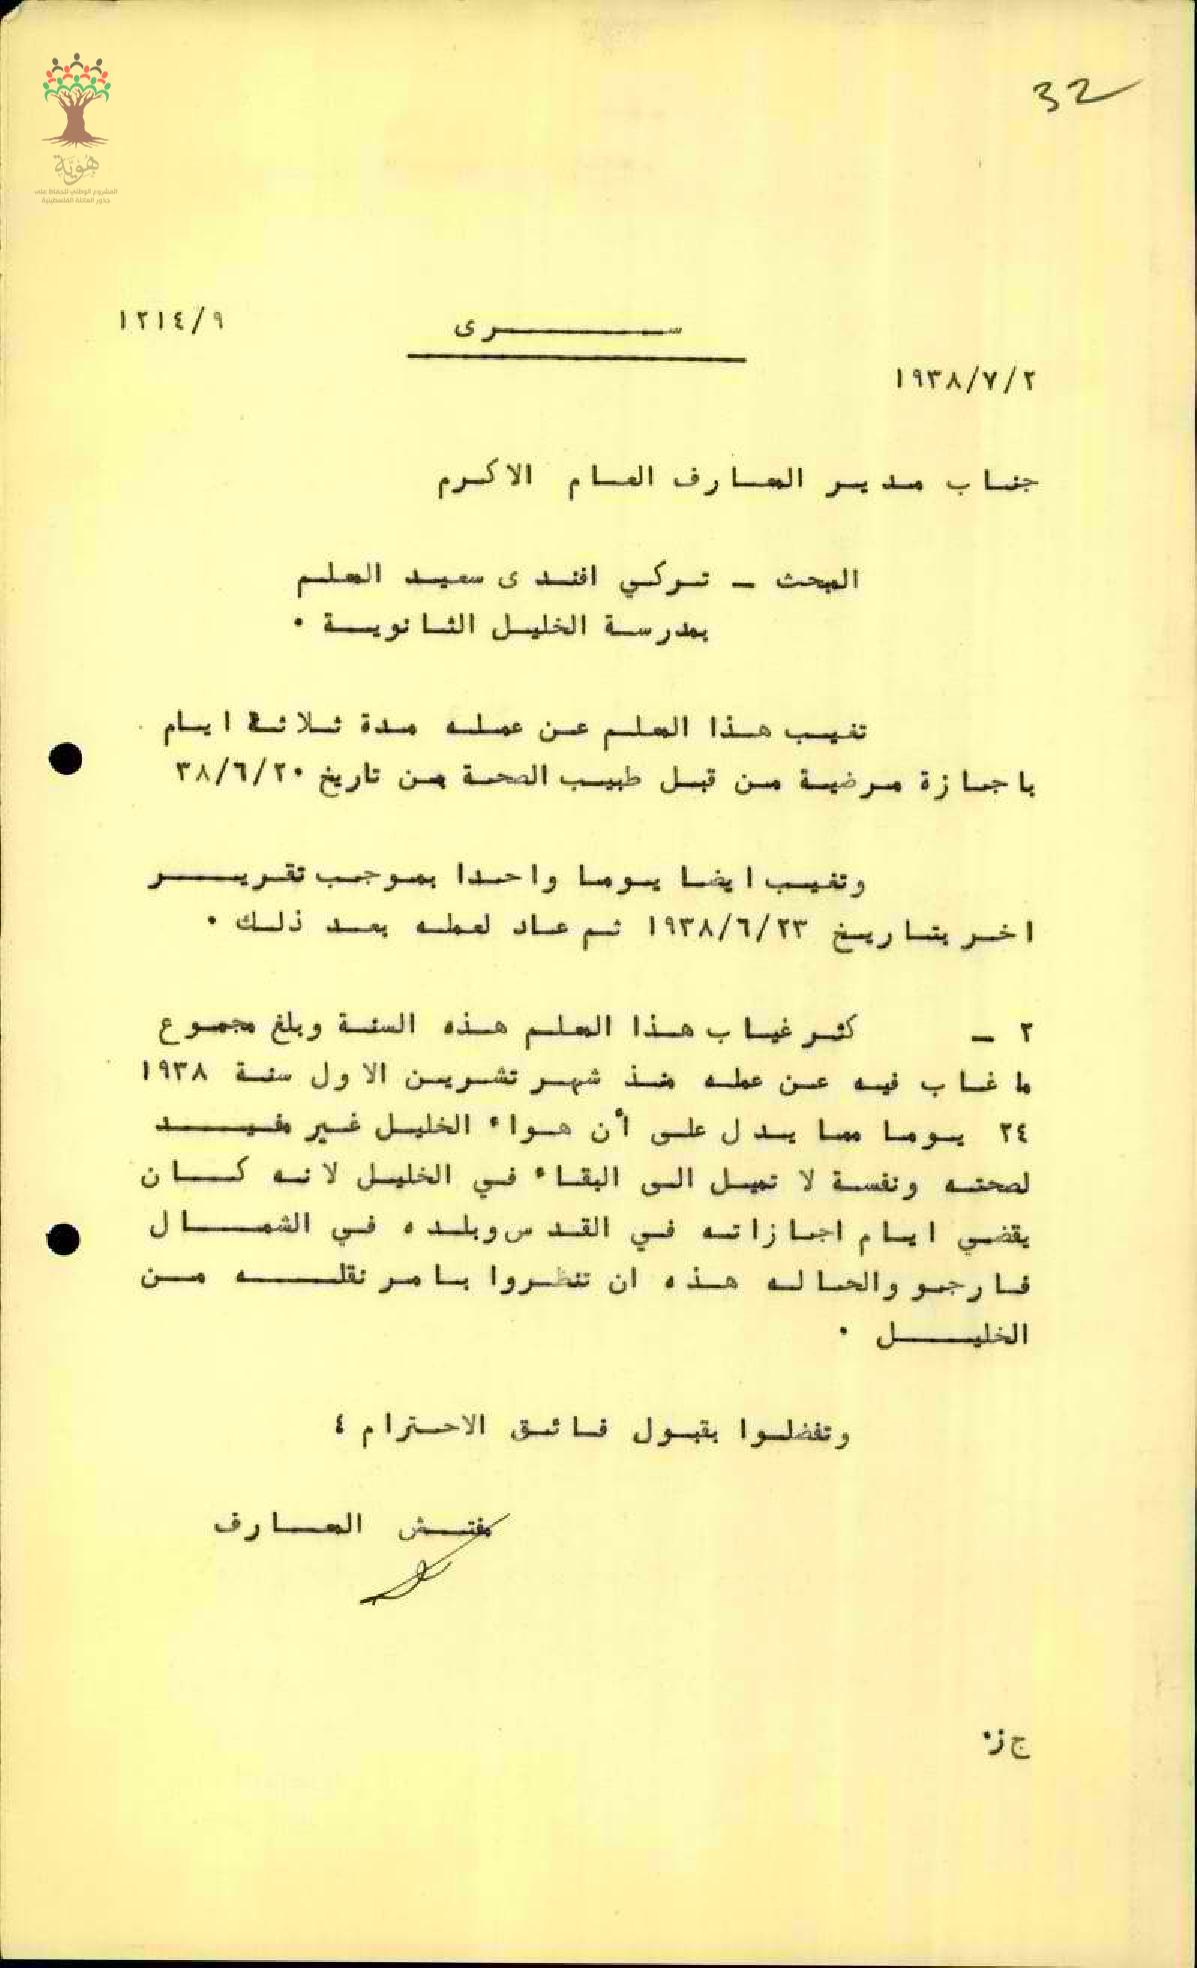 32
هُويَّة
المشروع الوطني للحفاظ على
جذور العائلة الفلسطينية
١٢١٤/٩
ســـرى
١٩٣٨/٧/٢
جناب مدير المعارف العام الاكرم
البحث – تركي افندى سعيد المعلم
بمدرسة الخليل الثانوية ٠
تغيب هذا المعلم عن عمله مدة ثلاثة ايام
باجازة مرضية من قبل طبيب الصحة من تاريخ ٣٨/٦/٢٠
وتغيب ايضا يوما واحدا بموجب تقريــر
اخر بتاريخ ١٩٣٨/٦/٢٣ ثم عاد لعمله بعد ذلك ٠
٢ – كثر غياب هذا المعلم هذه السنة وبلغ مجموع
ما غاب فيه عن عمله منذ شهر تشرين الاول سنة ١٩٣٨
٢٤ يوما مما يدل على أن هواء الخليل غير مفيــد
لصحته ونفسة لا تميل الى البقاء في الخليل لانه كــان
يقضي ايام اجازاته في القدس وبلده في الشمــال
فارجو والحاله هذه ان تنظروا بامر نقلــه من
الخليــل ٠
وتفضلوا بقبول فائق الاحترام ؛
مفتش المعارف
ج ز٠